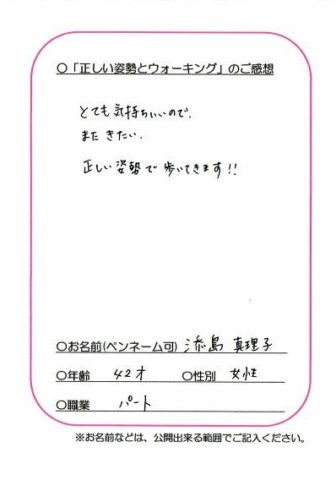 ○「正しい姿勢とウォーキング」のご感想
とても気持ちいいので、
また きたい.
正しい姿勢で歩いてきます!!
○お名前(ペンネーム可) 添島 真理子
○年齢 42才 ○性別 女性
○職業 パート
※お名前などは、公開出来る範囲でご記入ください。